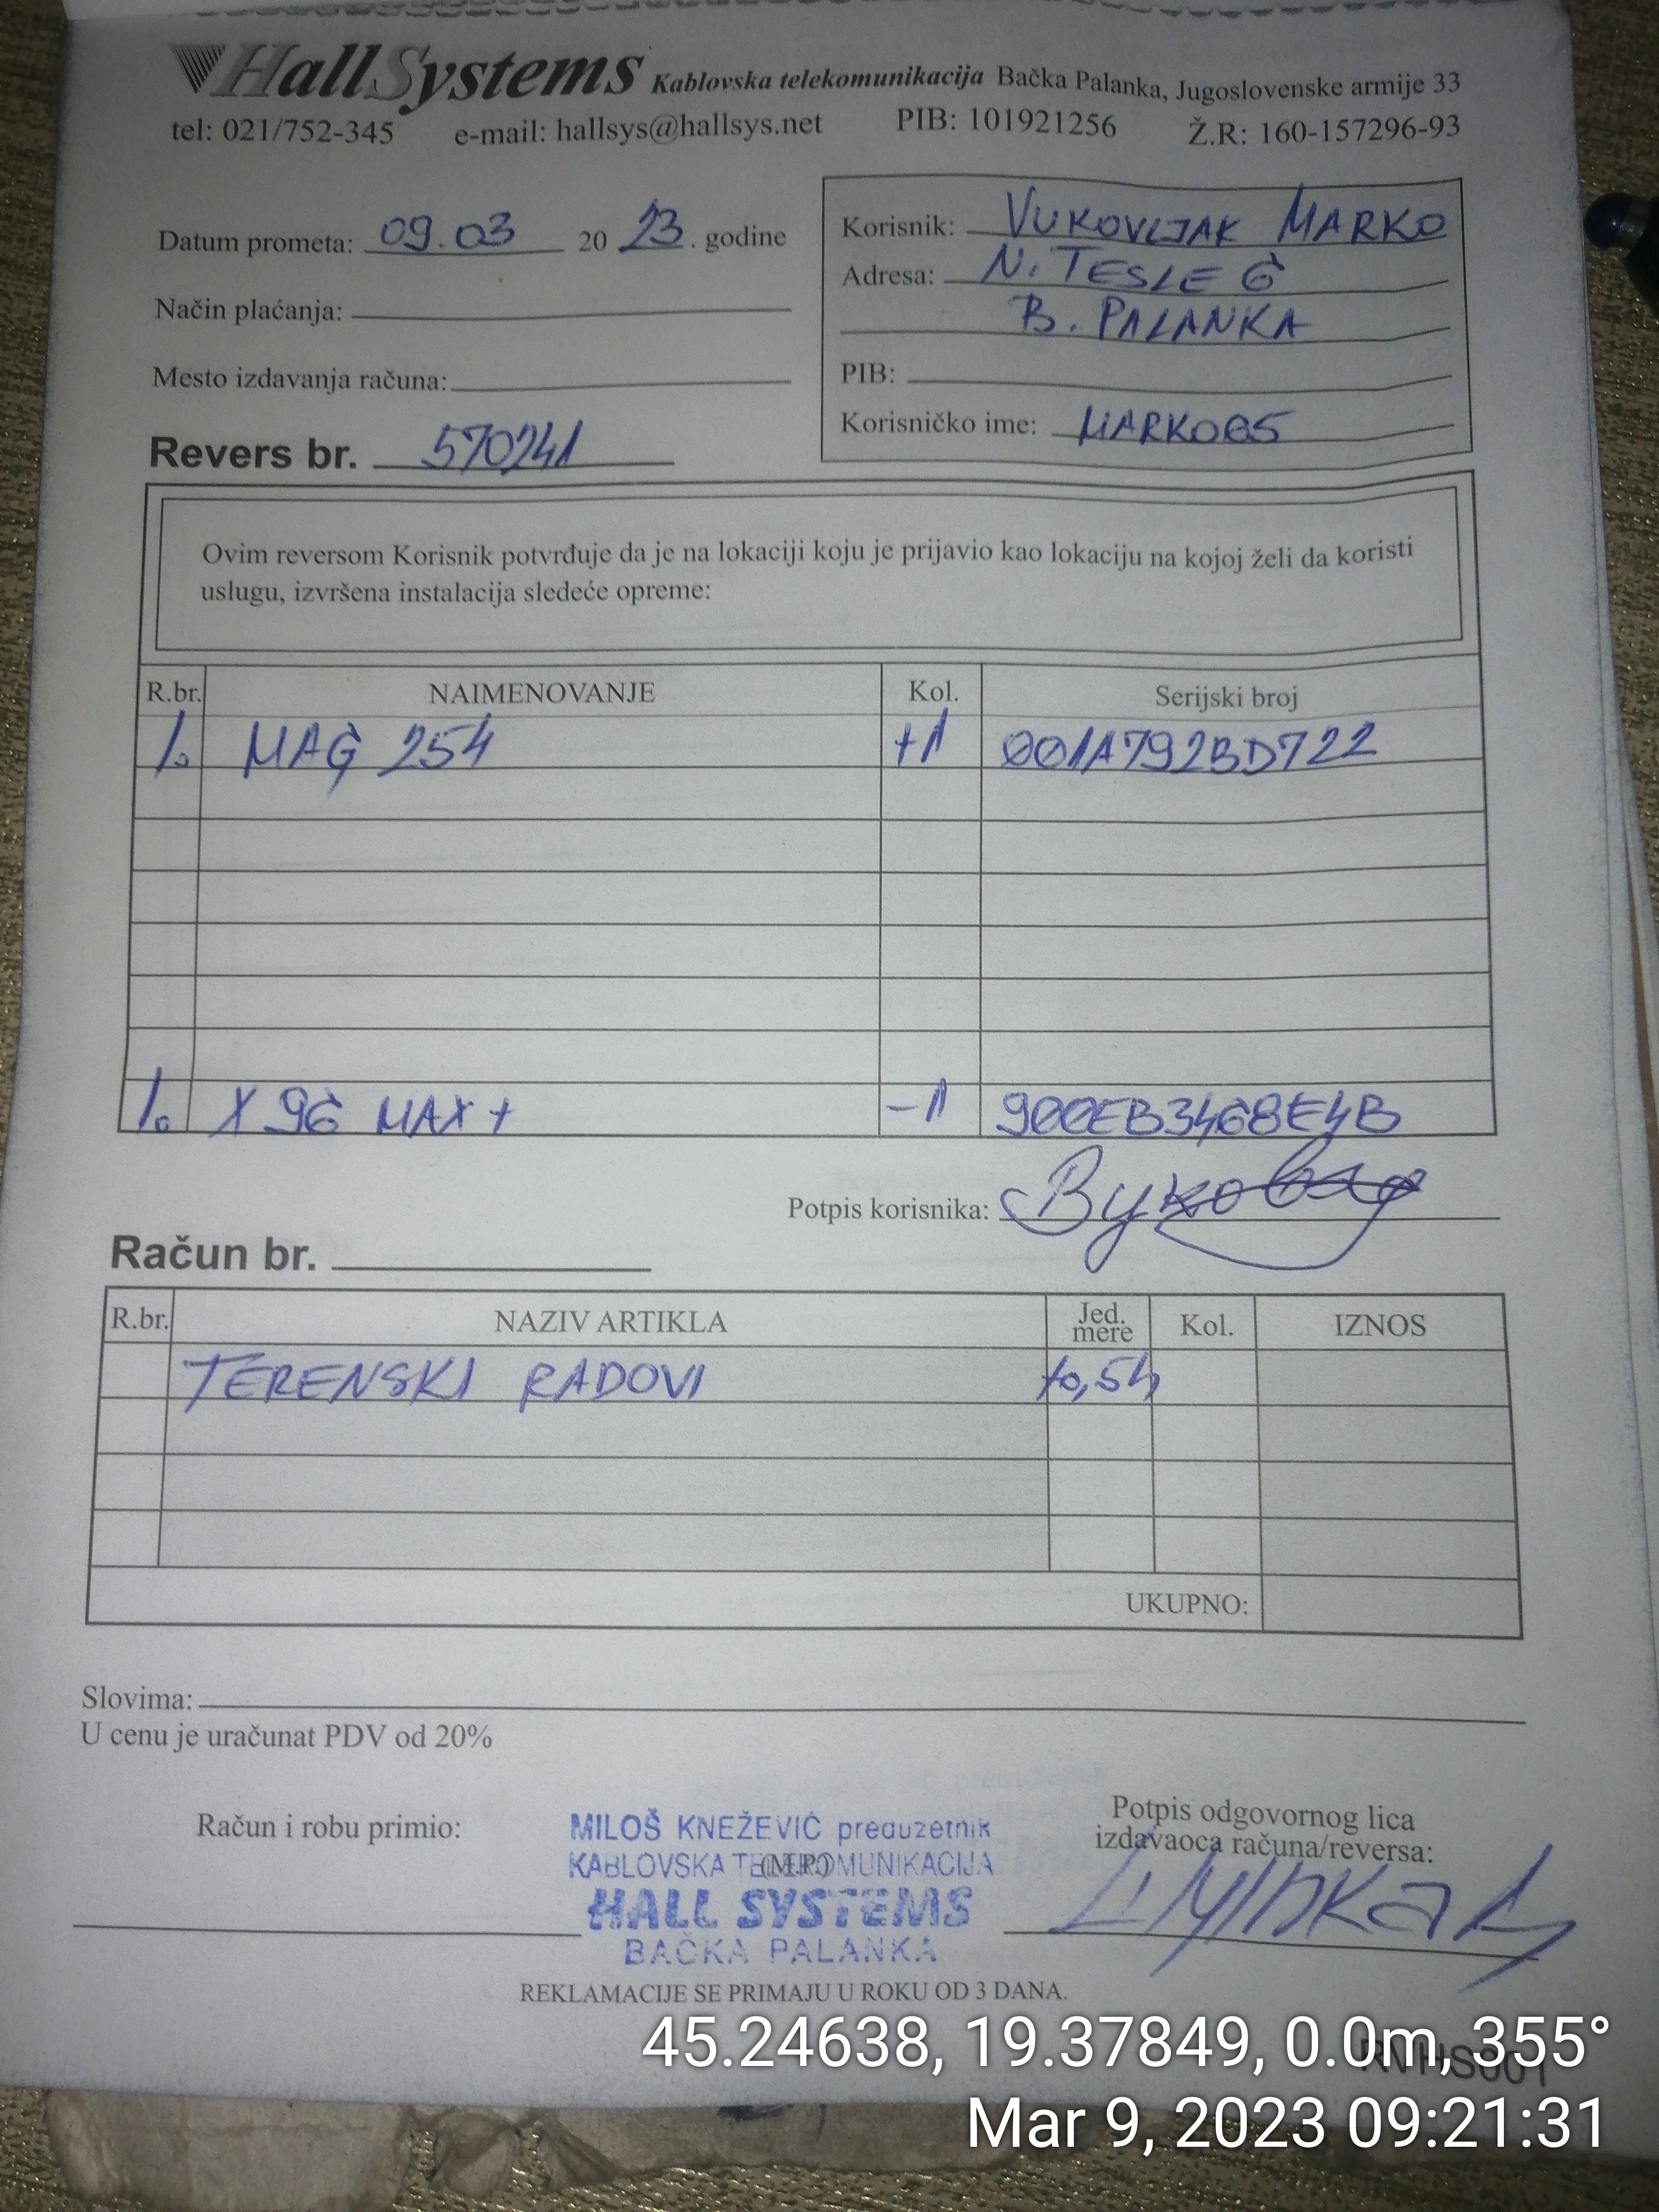 HallSystems Kablovska telekomunikacija Bačka Palanka, Jugoslovenske armije 33
tel: 021/752-345 e-mail: hallsys@hallsys.net PIB: 101921256 Ž.R: 160-157296-93
Datum prometa: 09.03 2023. godine
Način plaćanja:
Mesto izdavanja računa:
Revers br. 570241
Korisnik: VUKOVLJAK MARKO
Adresa: N. TESLE 6
B. PALANKA
PIB:
Korisničko ime: MARKO65
Ovim reversom Korisnik potvrđuje da je na lokaciji koju je prijavio kao lokaciju na kojoj želi da koristi
uslugu, izvršena instalacija sledeće opreme:
R.br. NAIMENOVANJE Kol. Serijski broj
1. MAG 254 +1 001A792BD722
1. X96 MAX+ -1 900EB3468E4B
Potpis korisnika:
Račun br.
R.br. NAZIV ARTIKLA Jed. mere Kol. IZNOS
TERENSKI RADOVI +0,5h
UKUPNO:
Slovima:
U cenu je uračunat PDV od 20%
Račun i robu primio:
MILOŠ KNEŽEVIĆ preduzetnik
KABLOVSKA TELEKOMUNIKACIJA
(M.P.)
HALL SYSTEMS
BAČKA PALANKA
Potpis odgovornog lica
izdavaoca računa/reversa:
REKLAMACIJE SE PRIMAJU U ROKU OD 3 DANA.
RVHS001
45.24638, 19.37849, 0.0m, 355°
Mar 9, 2023 09:21:31